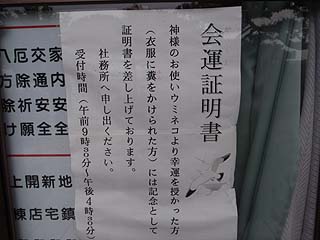 会運証明書
神様のお使いウミネコより幸運を授かった方
（衣服に糞をかけられた方）には記念として
証明書を差し上げております。
社務所へ申し出ください。
受付時間（午前9時30分〜午後4時30分）
家内安全
交通安全
厄除祈願
八方除け
地鎮
新宅
開店
上棟